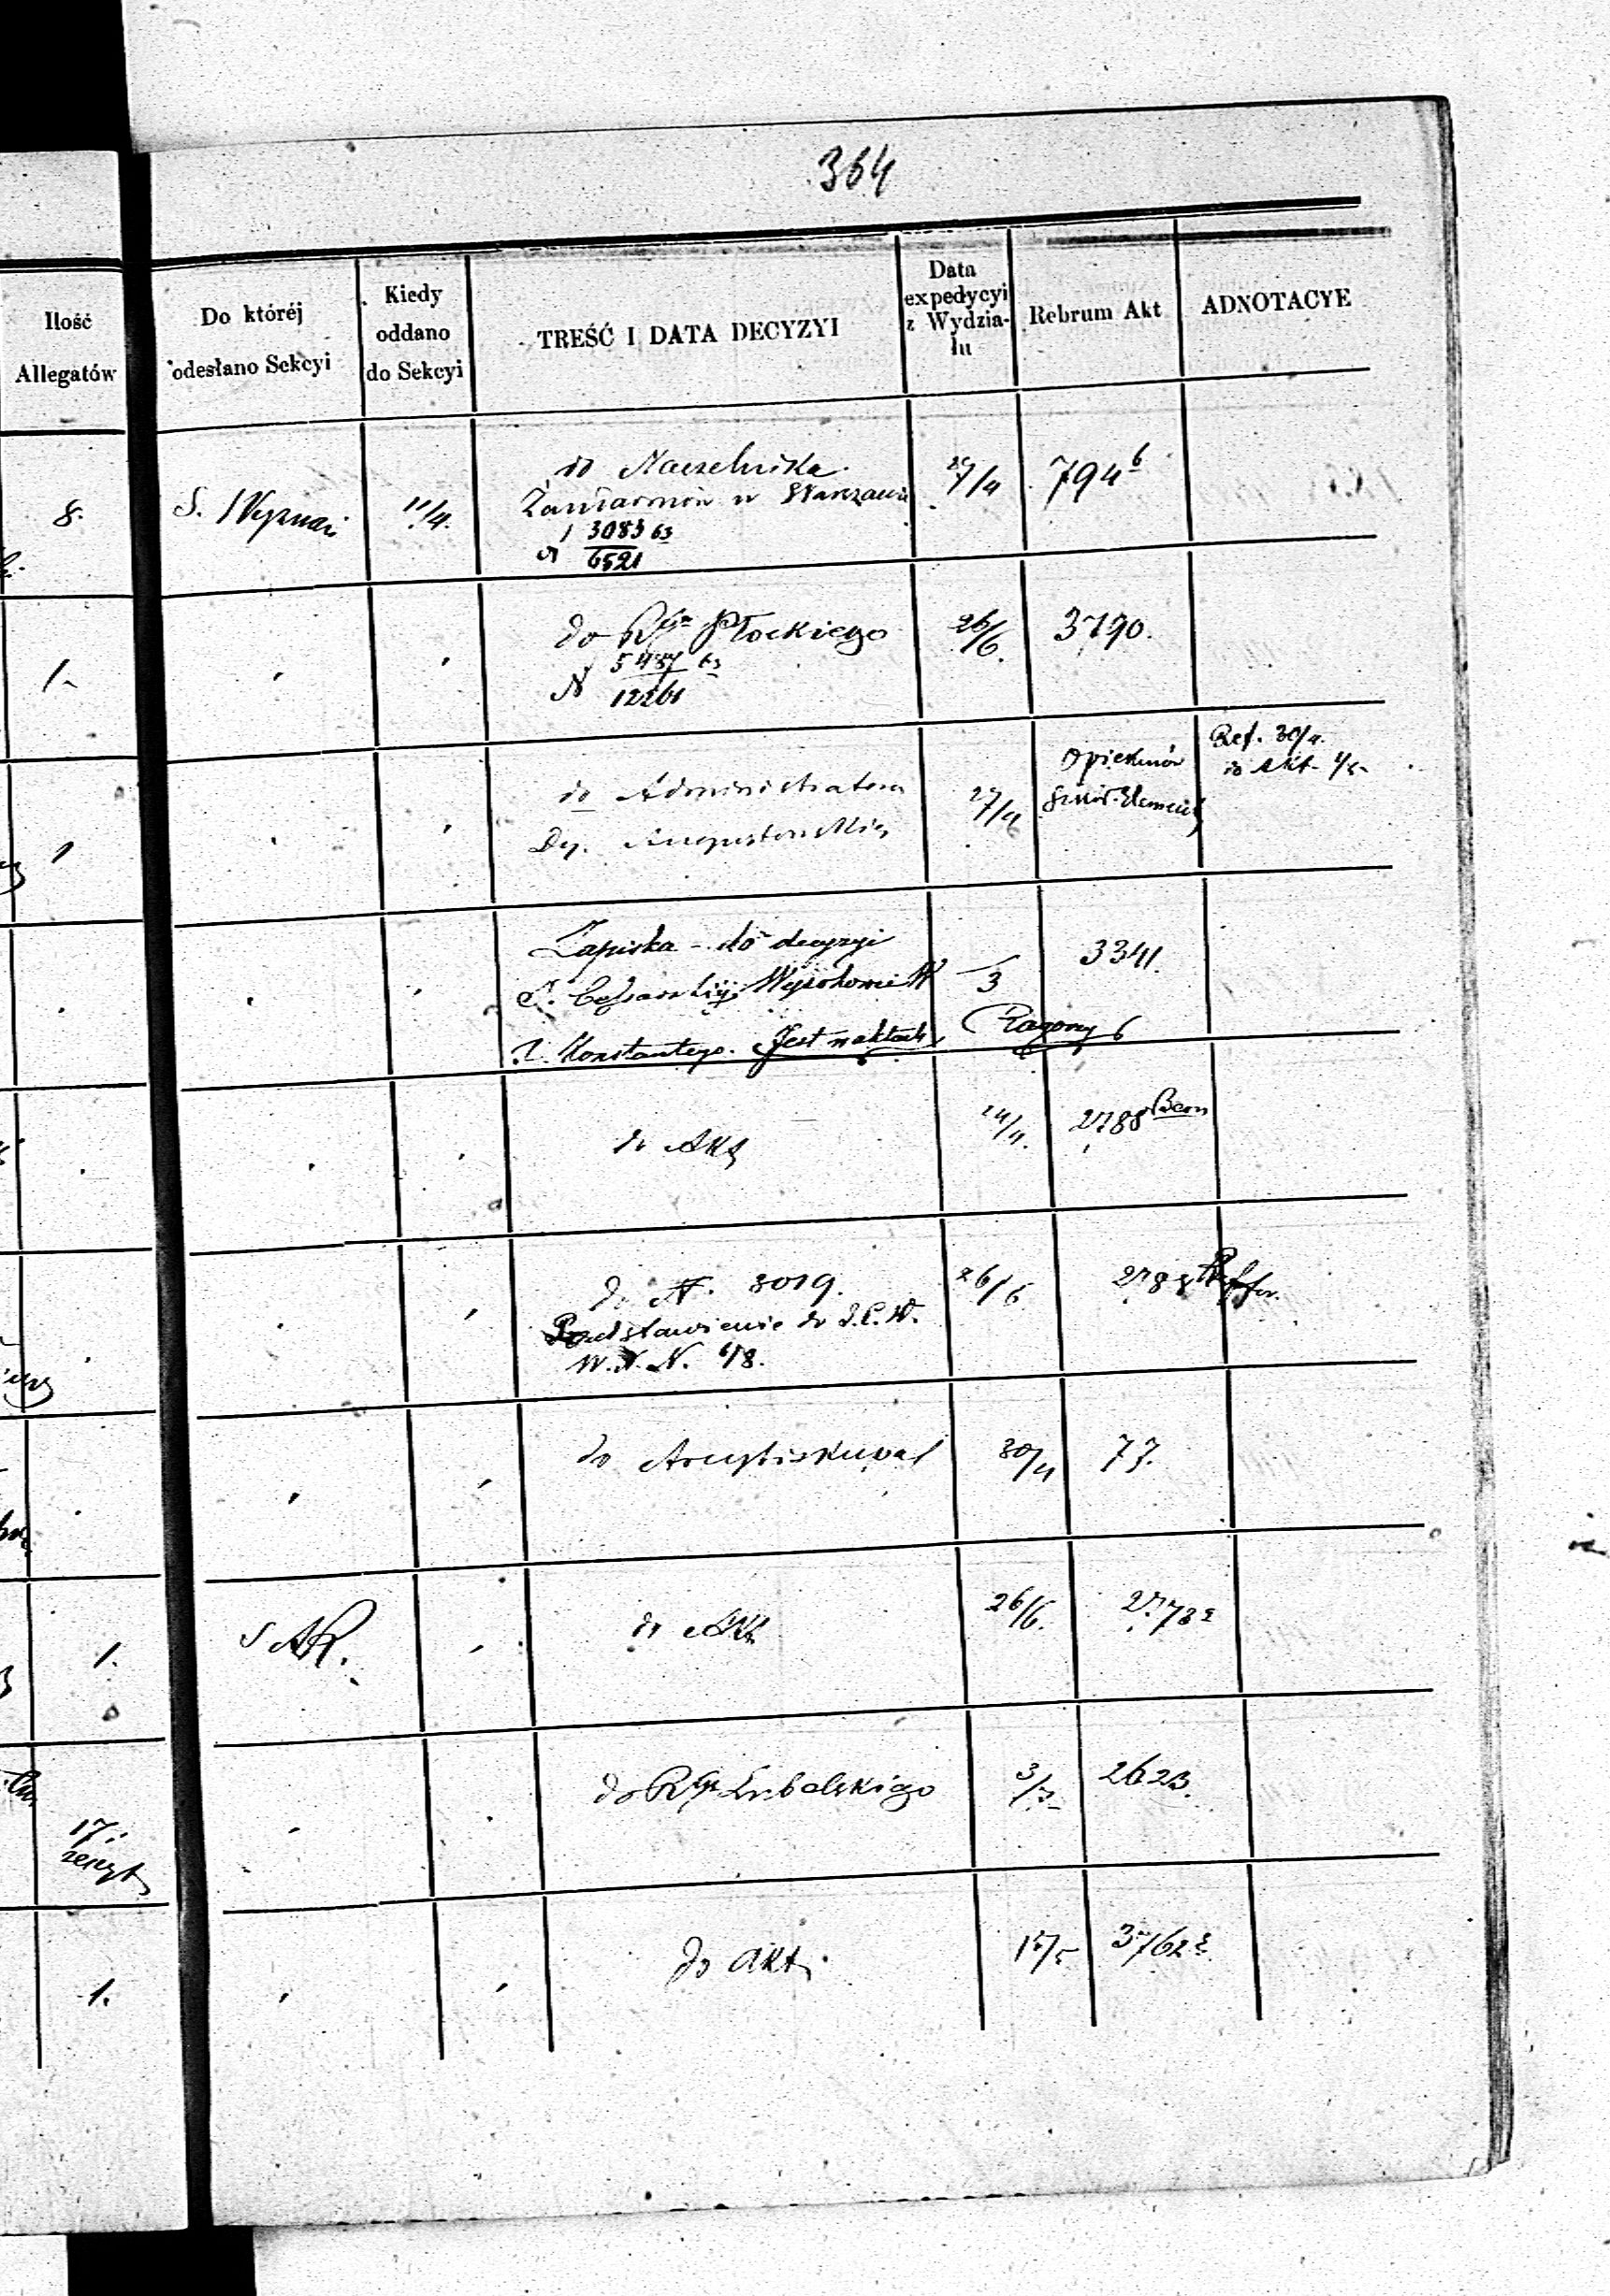 364
Ilość
Allegatów
Do któréj
odesłano Sekcyi
Kiedy
oddano
do Sekcyi
TREŚĆ I DATA DECYZYI
Data
expedycyi
z Wydzia-
łu
Rebrum Akt
ADNOTACYE
8.
S. Wyznań
11/4.
do Naczelnika
Żandarmów w Warszawie
N 3083 63
6521
29/4
794 b
1.
do Rgu Płockiego
N 5487 63
12261
26/6.
3790.
1
do Administratora
Dy. Augustowskiej
27/4
Opiekunów
Szkół Elemen
Ref. 30/4.
do Akt
Zapiska - do decyzyi
J. Cesarskiej Wysokości W
X. Konstantego. Jest w aktach
3
3341.
do Akt
24/4.
2788
do N. 3019.
Przedstawienie do
W. N. 6/8.
26/6
do Arcybiskupa
30/4
77.
1.
S AR.
do Akt
26/6.
17.
zeszyt
do Rgu Lubelskiego
3/7
2623.
1.
do Akt
15/5
3762